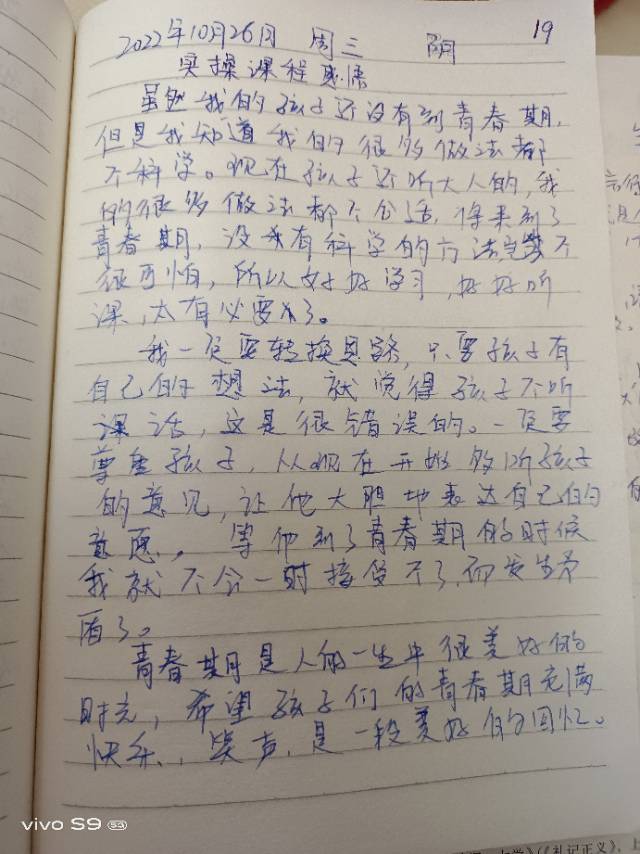 19
2022年10月26日 周三 阴
实操课程感悟
虽然我的孩子还没有到青春期,
但是我知道我的很多做法都
不科学。现在孩子还听大人的,我
的很多做法都不合适,将来到了
青春期,没有科学的方法
很可怕,所以好好学习,好好听
课,太有必要了。
我一定要转换思路,只要孩子有
自己的想法,就觉得孩子不听
话,这是很错误的。一定要
尊重孩子,从现在开始多听孩子
的意见,让他大胆地表达自己的
意愿。等他到了青春期的时候
我就不会一时接受不了,而发生矛
盾了。
青春期是人的一生中很美好的
时光,希望孩子们的青春期充满
快乐、笑声,是一段美好的回忆。
vivo S9 5G
《礼记正义》,上